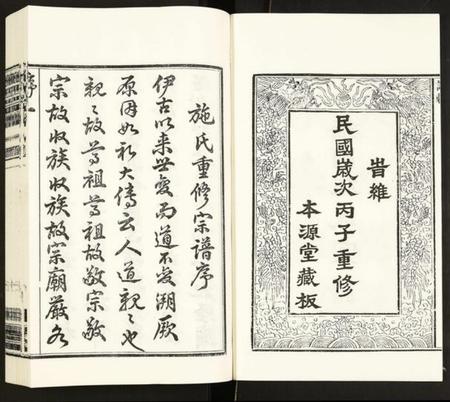 旹維
民國歲次丙子重修
本源堂藏板
施氏重修宗譜序
伊古以来世變而道不變溯厥
原因如礼大傳云人道親〻也
親〻故尊祖尊祖故敬宗敬
宗故收族收族故宗廟嚴
序一